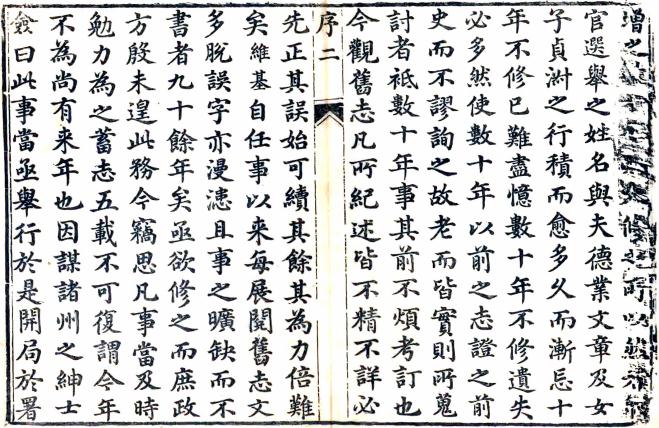 增之修之所以
官選舉之姓名與夫德業文章及女
子貞淑之行積而愈多久而漸忘十
年不修已難盡憶數十年不修遺失
必多然使數十年以前之志證之前
史而不謬詢之故老而皆實則所蒐
討者祇數十年事其前不煩考訂也
今觀舊志凡所紀述皆不精不詳必
序二
先正其誤始可續其餘其為力倍難
矣維基自任事以來每展閱舊志文
多脫誤字亦漫漶且事之曠缺而不
書者九十餘年矣亟欲修之而庶政
方殷未遑此務今竊思凡事當及時
勉力為之蓄志五載不可復謂今年
不為尚有来年也因謀諸州之紳士
僉曰此事當亟舉行於是開局於署